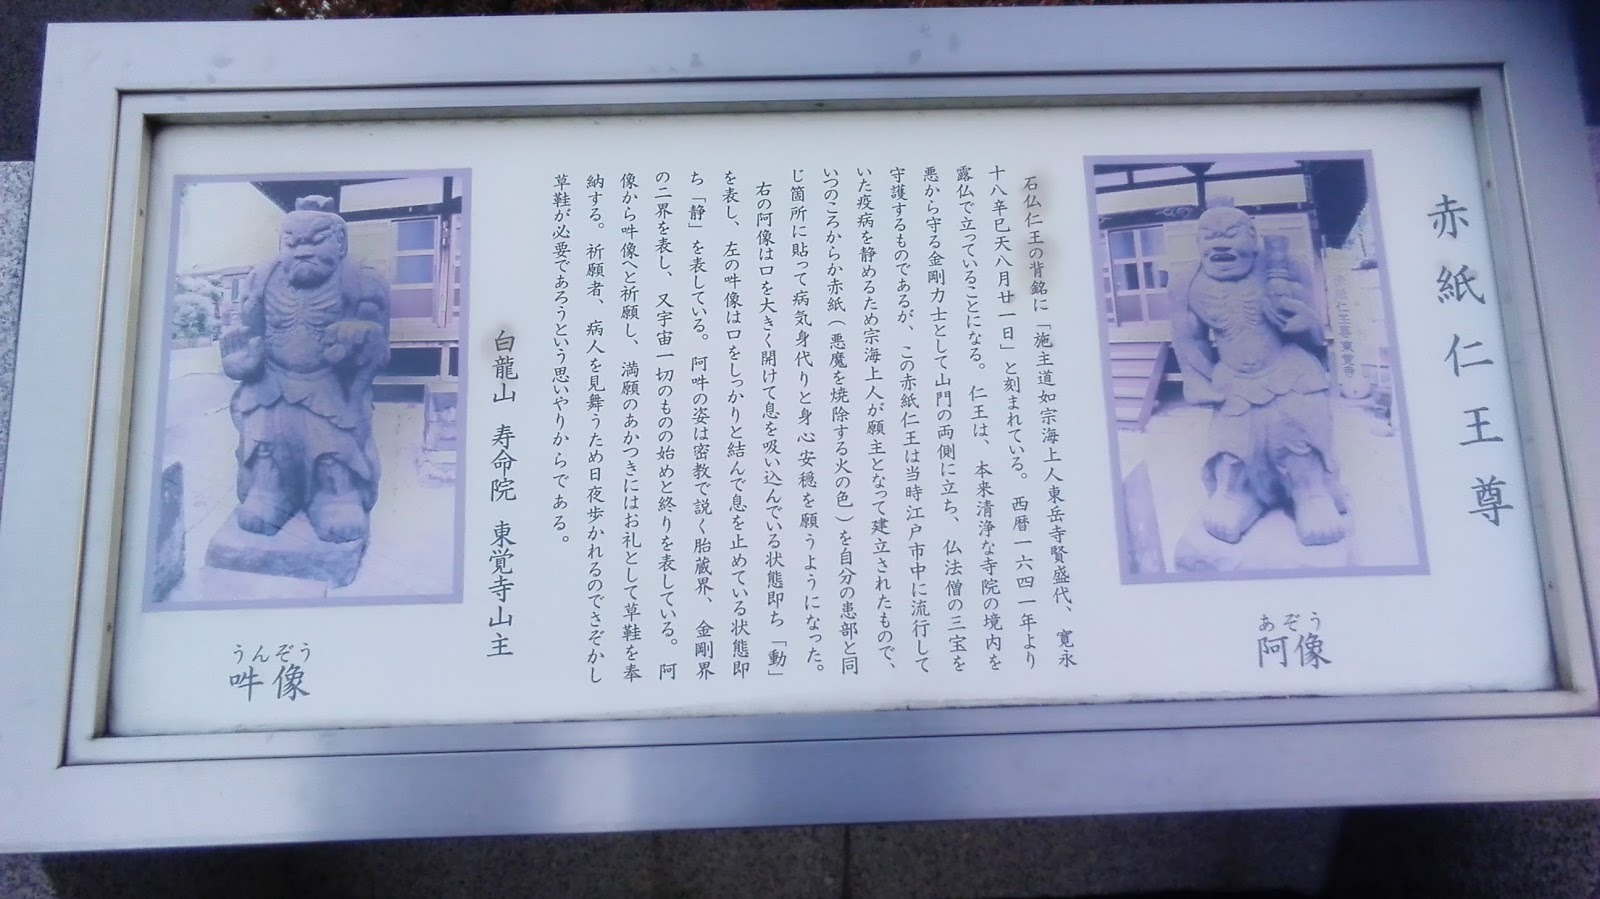 赤紙仁王尊
あぞう
阿像
石仏仁王の背銘に「施主道如宗海上人東岳寺賢盛代、寛永
十八辛巳天八月廿一日」と刻まれている。西暦一六四一年より
露仏で立っていることになる。仁王は、本来清浄な寺院の境内を
悪から守る金剛力士として山門の両側に立ち、仏法僧の三宝を
守護するものであるが、この赤紙仁王は当時江戸市中に流行して
いた疫病を静めるため宗海上人が願主となって建立されたもので、
いつのころからか赤紙（悪魔を焼除する火の色）を自分の患部と同
じ箇所に貼って病気身代りと身心安穏を願うようになった。
右の阿像は口を大きく開けて息を吸い込んでいる状態即ち「動」
を表し、左の吽像は口をしっかりと結んで息を止めている状態即
ち「静」を表している。阿吽の姿は密教で説く胎蔵界、金剛界
の二界を表し、又宇宙一切のものの始めと終りを表している。阿
像から吽像へと祈願し、満願のあかつきにはお礼として草鞋を奉
納する。祈願者、病人を見舞うため日夜歩かれるのでさぞかし
草鞋が必要であろうという思いやりからである。
白龍山 寿命院 東覚寺山主
うんぞう
吽像
赤紙仁王尊東覚寺